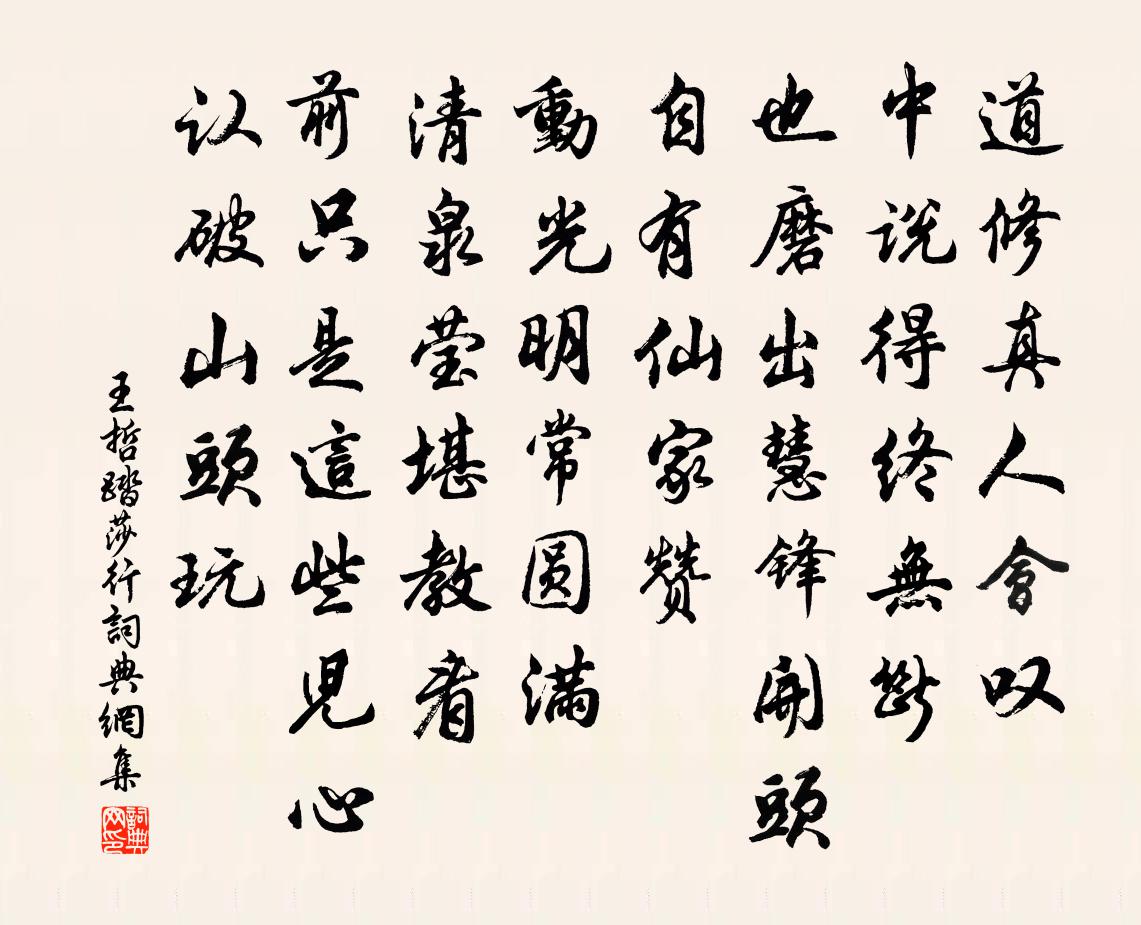 道修真人會叹
中说得终無斷
也磨出慧锋開頭
自有仙家赞
動光明常圆满
清泉莹堪教看
前只是這些児心
认破山頭玩
王哲踏莎行詞典網集
詞典网印